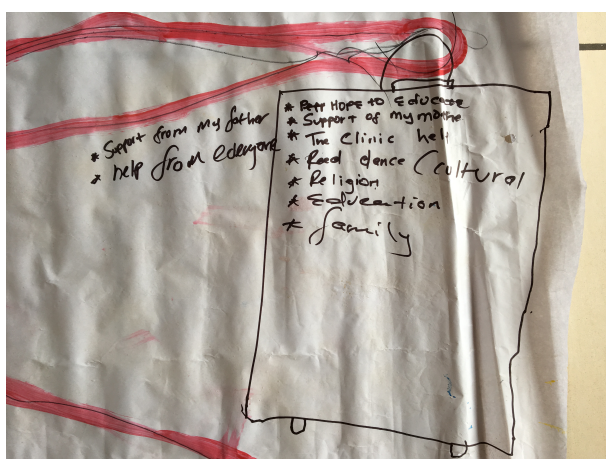 * Support from my father
* help from everyone
* HOPE to Educate
* Support of my mothe
* The Clinic hel
* Reed dance (cultural
* Religion
* Education
* family